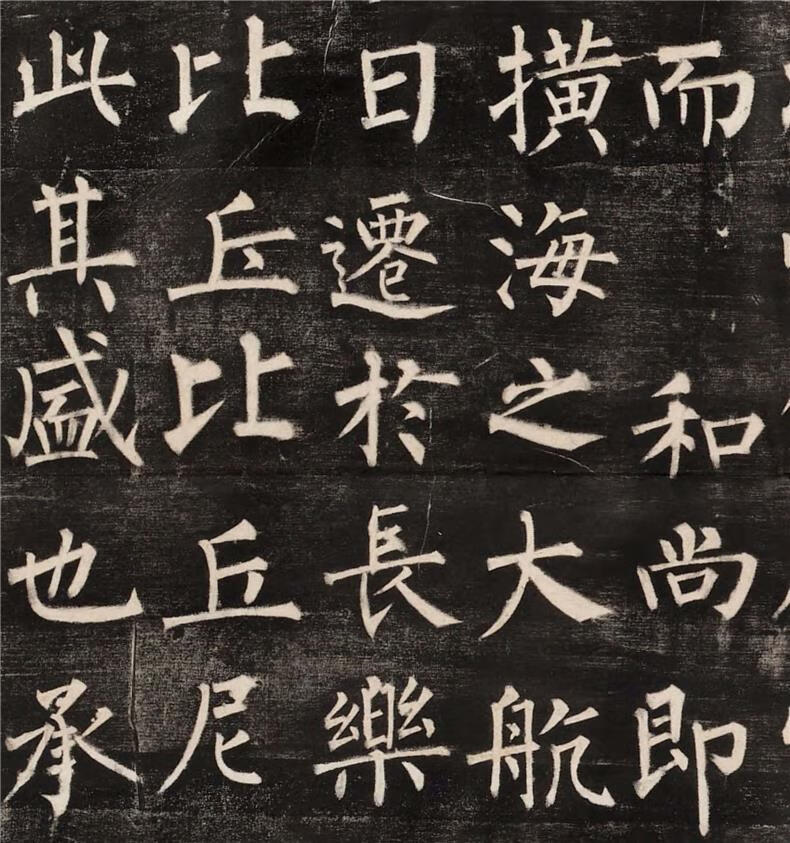 而 和尚即
撗海之大航
日遷於長樂
比丘比丘尼
此其盛也承